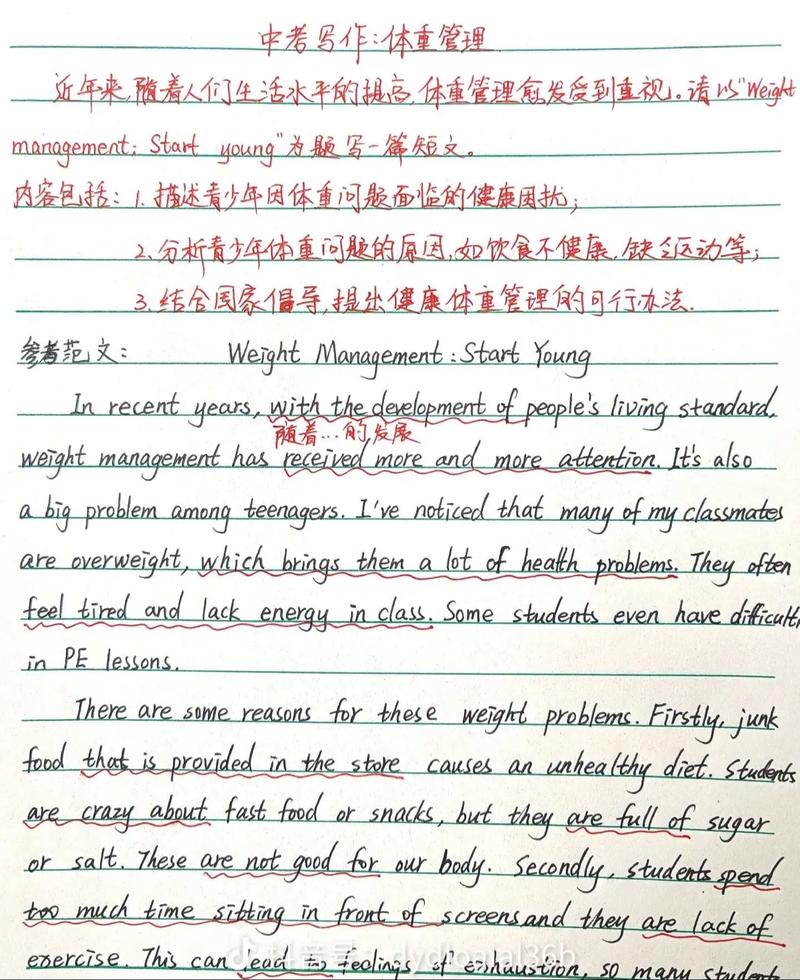 中考写作：体重管理
近年来,随着人们生活水平的提高,体重管理愈发受到重视。请以"Weight
management: Start young"为题写一篇短文。
内容包括：1.描述青少年因体重问题面临的健康困扰；
2.分析青少年体重问题的原因,如饮食不健康,缺乏运动等；
3.结合国家倡导,提出健康体重管理的可行办法.
参考范文： Weight Management: Start Young
In recent years, with the development of people's living standard,
随着…的发展
weight management has received more and more attention. It's also
a big problem among teenagers. I've noticed that many of my classmates
are overweight, which brings them a lot of health problems. They often
feel tired and lack energy in class. Some students even have difficult
in PE lessons.
There are some reasons for these weight problems. Firstly, junk
food that is provided in the store causes an unhealthy diet. Students
are crazy about fast food or snacks, but they are full of sugar
or salt. These are not good for our body. Secondly, students spend
too much time sitting in front of screens and they are lack of
exercise. This can lead to feelings of exhaustion, so many student
抖音号：